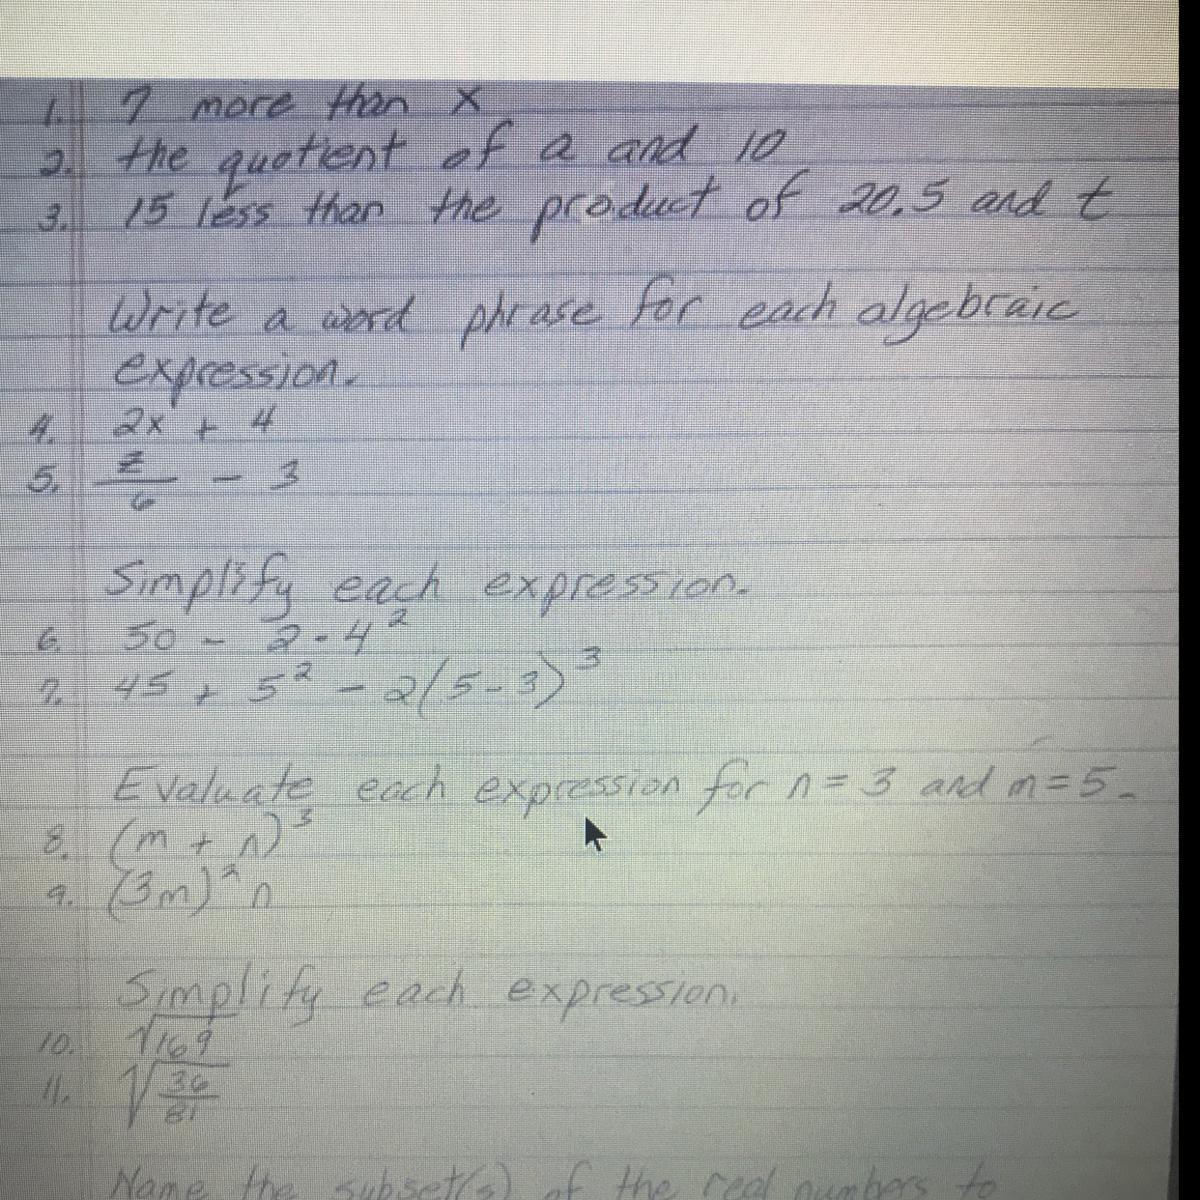 1. 7 more than x
2. the quotient of a and 10
3. 15 less than the product of 20.5 and t
Write a word phrase for each algebraic
expression.
4. 2x + 4
5. z/6 - 3
Simplify each expression.
6. 50 - 2 · 4²
7. 45 + 5² - 2(5-3)³
Evaluate each expression for n = 3 and m = 5.
8. (m + n)³
9. (3m)²n
Simplify each expression.
10. √169
11. √36/81
Name the subset(s) of the real numbers to